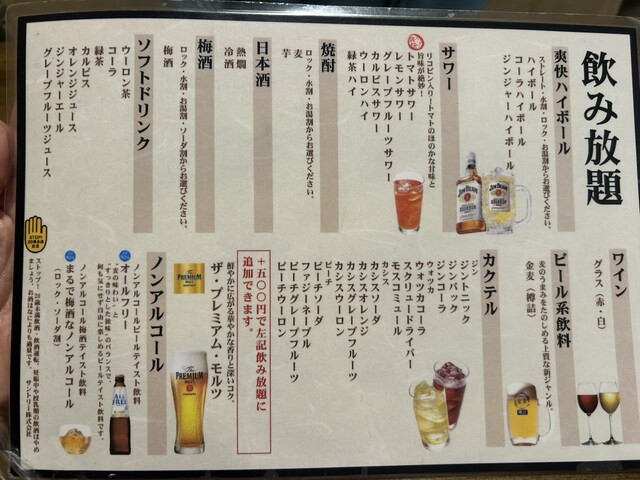 飲み放題
爽快ハイボール
ストレート・水割・ロック・お湯割からお選びください。
ハイボール
コーラハイボール
ジンジャーハイボール
サワー
リコピン入り!トマトのほのかな甘味と
旨味が絶妙!
トマトサワー
レモンサワー
グレープフルーツサワー
カルピスサワー
ウーロンハイ
緑茶ハイ
焼酎
ロック・水割・お湯割からお選びください。
麦
芋
日本酒
熱燗
冷酒
梅酒
ロック・水割・お湯割・ソーダ割からお選びください。
梅酒
ソフトドリンク
ウーロン茶
コーラ
緑茶
カルピス
オレンジジュース
ジンジャーエール
グレープフルーツジュース
ワイン
グラス(赤・白)
ビール系飲料
麦のうまみをたのしめる上質な新ジャンル。
金麦(樽詰)
カクテル
ジン
ジントニック
ジンバック
ジンコーラ
ウォッカ
ウォッカコーラ
スクリュードライバー
モスコミュール
カシス
カシスソーダ
カシスオレンジ
カシスグレープフルーツ
カシスウーロン
ピーチ
ピーチソーダ
ファジーネーブル
ピーチグレープフルーツ
ピーチウーロン
+五〇〇円で左記飲み放題に
追加できます。
鮮やかに広がる華やかな香りと深いコク。
ザ・プレミアム・モルツ
ノンアルコール
ノンアルコールビールテイスト飲料
オールフリー
"麦の味わい"と
"すっきりとした後味"のバランスで
何も足さずに自由に楽しめるビールテイスト飲料です。
ノンアルコール梅酒テイスト飲料
まるで梅酒なノンアルコール
(ロック・ソーダ割)
STOP!
20歳未満
飲酒
ストップ!20歳未満飲酒・飲酒運転。妊娠中や授乳期の飲酒はやめ
ましょう。お酒はなによりも適量です。 サントリー株式会社
JIM BEAM
BOURBON
The
PREMIUM
MALT'S
ALL-FREE